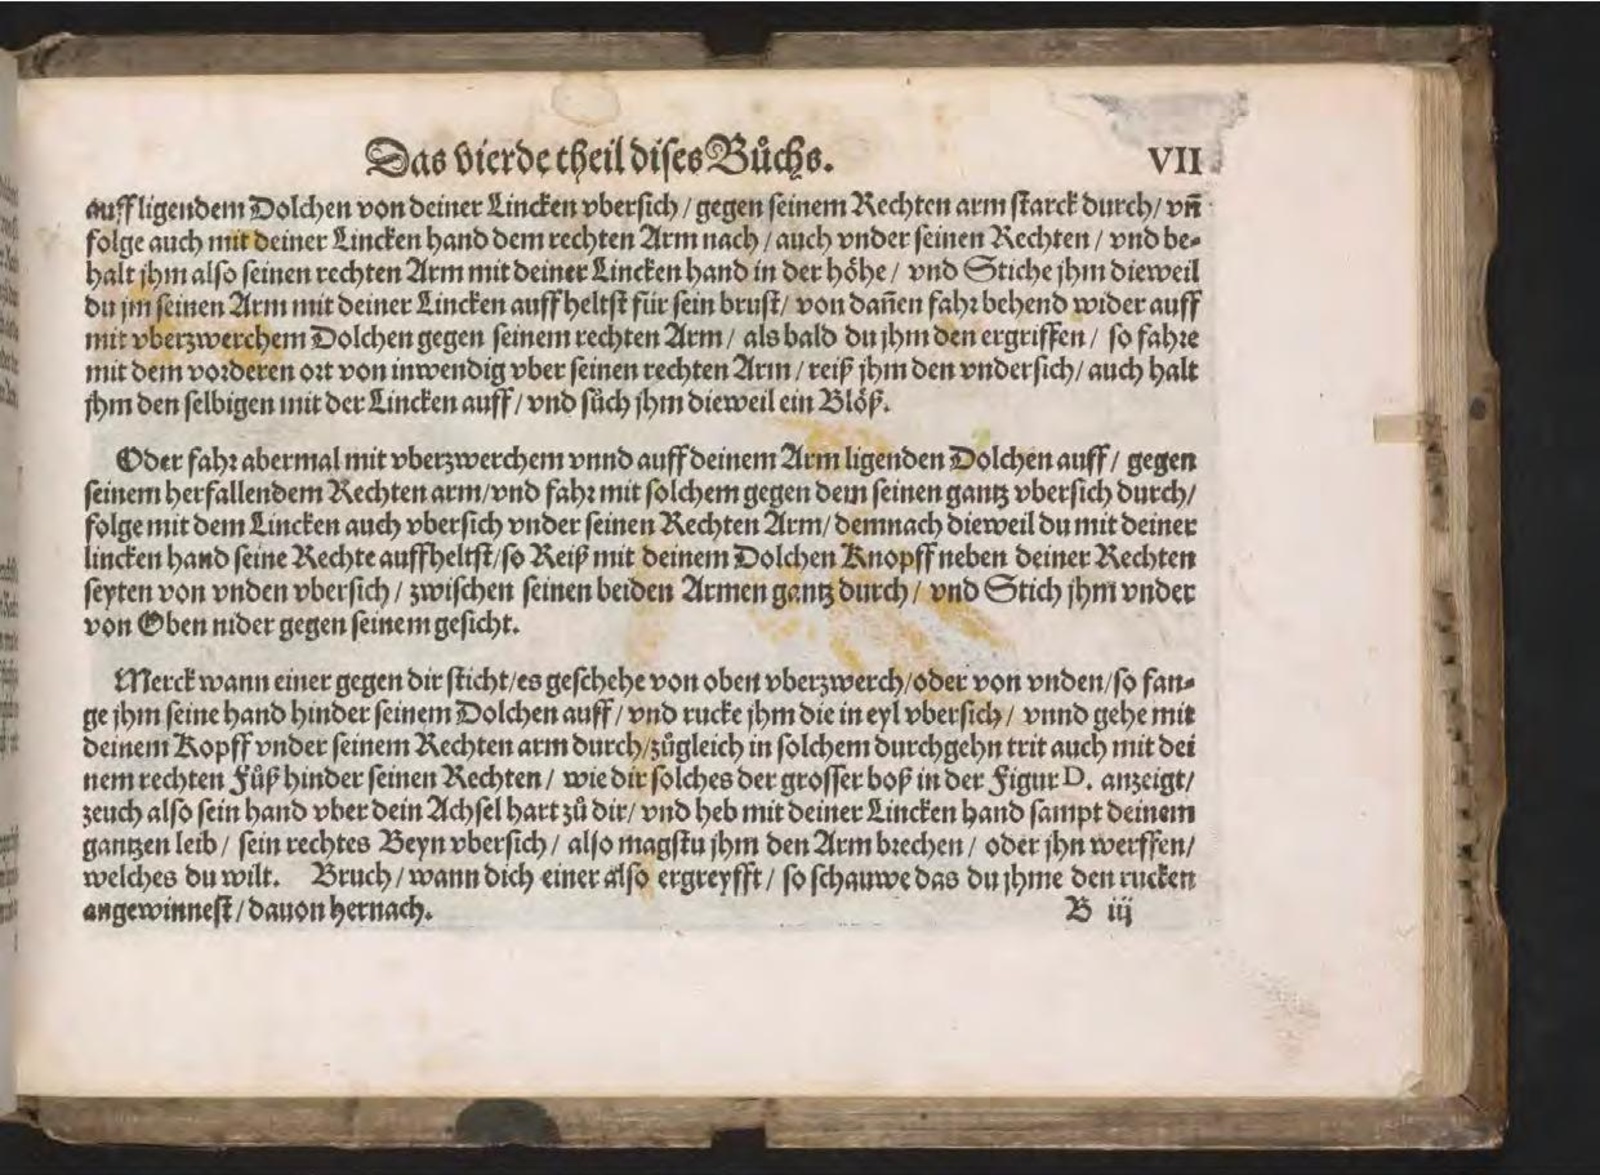 Das vierde theil dises Bůchs. VII
auff ligendem Dolchen von deiner Lincken vbersich / gegen seinem Rechten arm starck durch / vn̄
folge auch mit deiner Lincken hand dem rechten Arm nach / auch vnder seinen Rechten / vnd be-
halt jhm also seinen rechten Arm mit deiner Lincken hand in der höhe / vnd Stiche jhm dieweil
du jm seinen Arm mit deiner Lincken auff heltst für sein brust / von dañen fahr behend wider auff
mit vberzwerchem Dolchen gegen seinem rechten Arm / als bald du jhm den ergriffen / so fahre
mit dem vorderen ort von inwendig vber seinen rechten Arm / reiß jhm den vndersich / auch halt
jhm den selbigen mit der Lincken auff / vnd sůch jhm dieweil ein Blöß.
Oder fahr abermal mit vberzwerchem vnnd auff deinem Arm ligenden Dolchen auff / gegen
seinem herfallendem Rechten arm / vnd fahr mit solchem gegen dem seinen gantz vbersich durch /
folge mit dem Lincken auch vbersich vnder seinen Rechten Arm / demnach dieweil du mit deiner
lincken hand seine Rechte auffheltst / so Reiß mit deinem Dolchen Knopff neben deiner Rechten
seyten von vnden vbersich / zwischen seinen beiden Armen gantz durch / vnd Stich jhm vnder
von Oben nider gegen seinem gesicht.
Merck wann einer gegen dir sticht / es geschehe von oben vberzwerch / oder von vnden / so fan-
ge jhm seine hand hinder seinem Dolchen auff / vnd rucke jhm die in eyl vbersich / vnnd gehe mit
deinem Kopff vnder seinem Rechten arm durch / zůgleich in solchem durchgehn trit auch mit dei
nem rechten Fůß hinder seinen Rechten / wie dir solches der grosser boß in der Figur D. anzeigt /
zeuch also sein hand vber dein Achsel hart zů dir / vnd heb mit deiner Lincken hand sampt deinem
gantzen leib / sein rechtes Beyn vbersich / also magstu jhm den Arm brechen / oder jhn werffen /
welches du wilt. Bruch / wann dich einer also ergreyfft / so schauwe das du jhme den rucken
angewinnest / dauon hernach. B iij